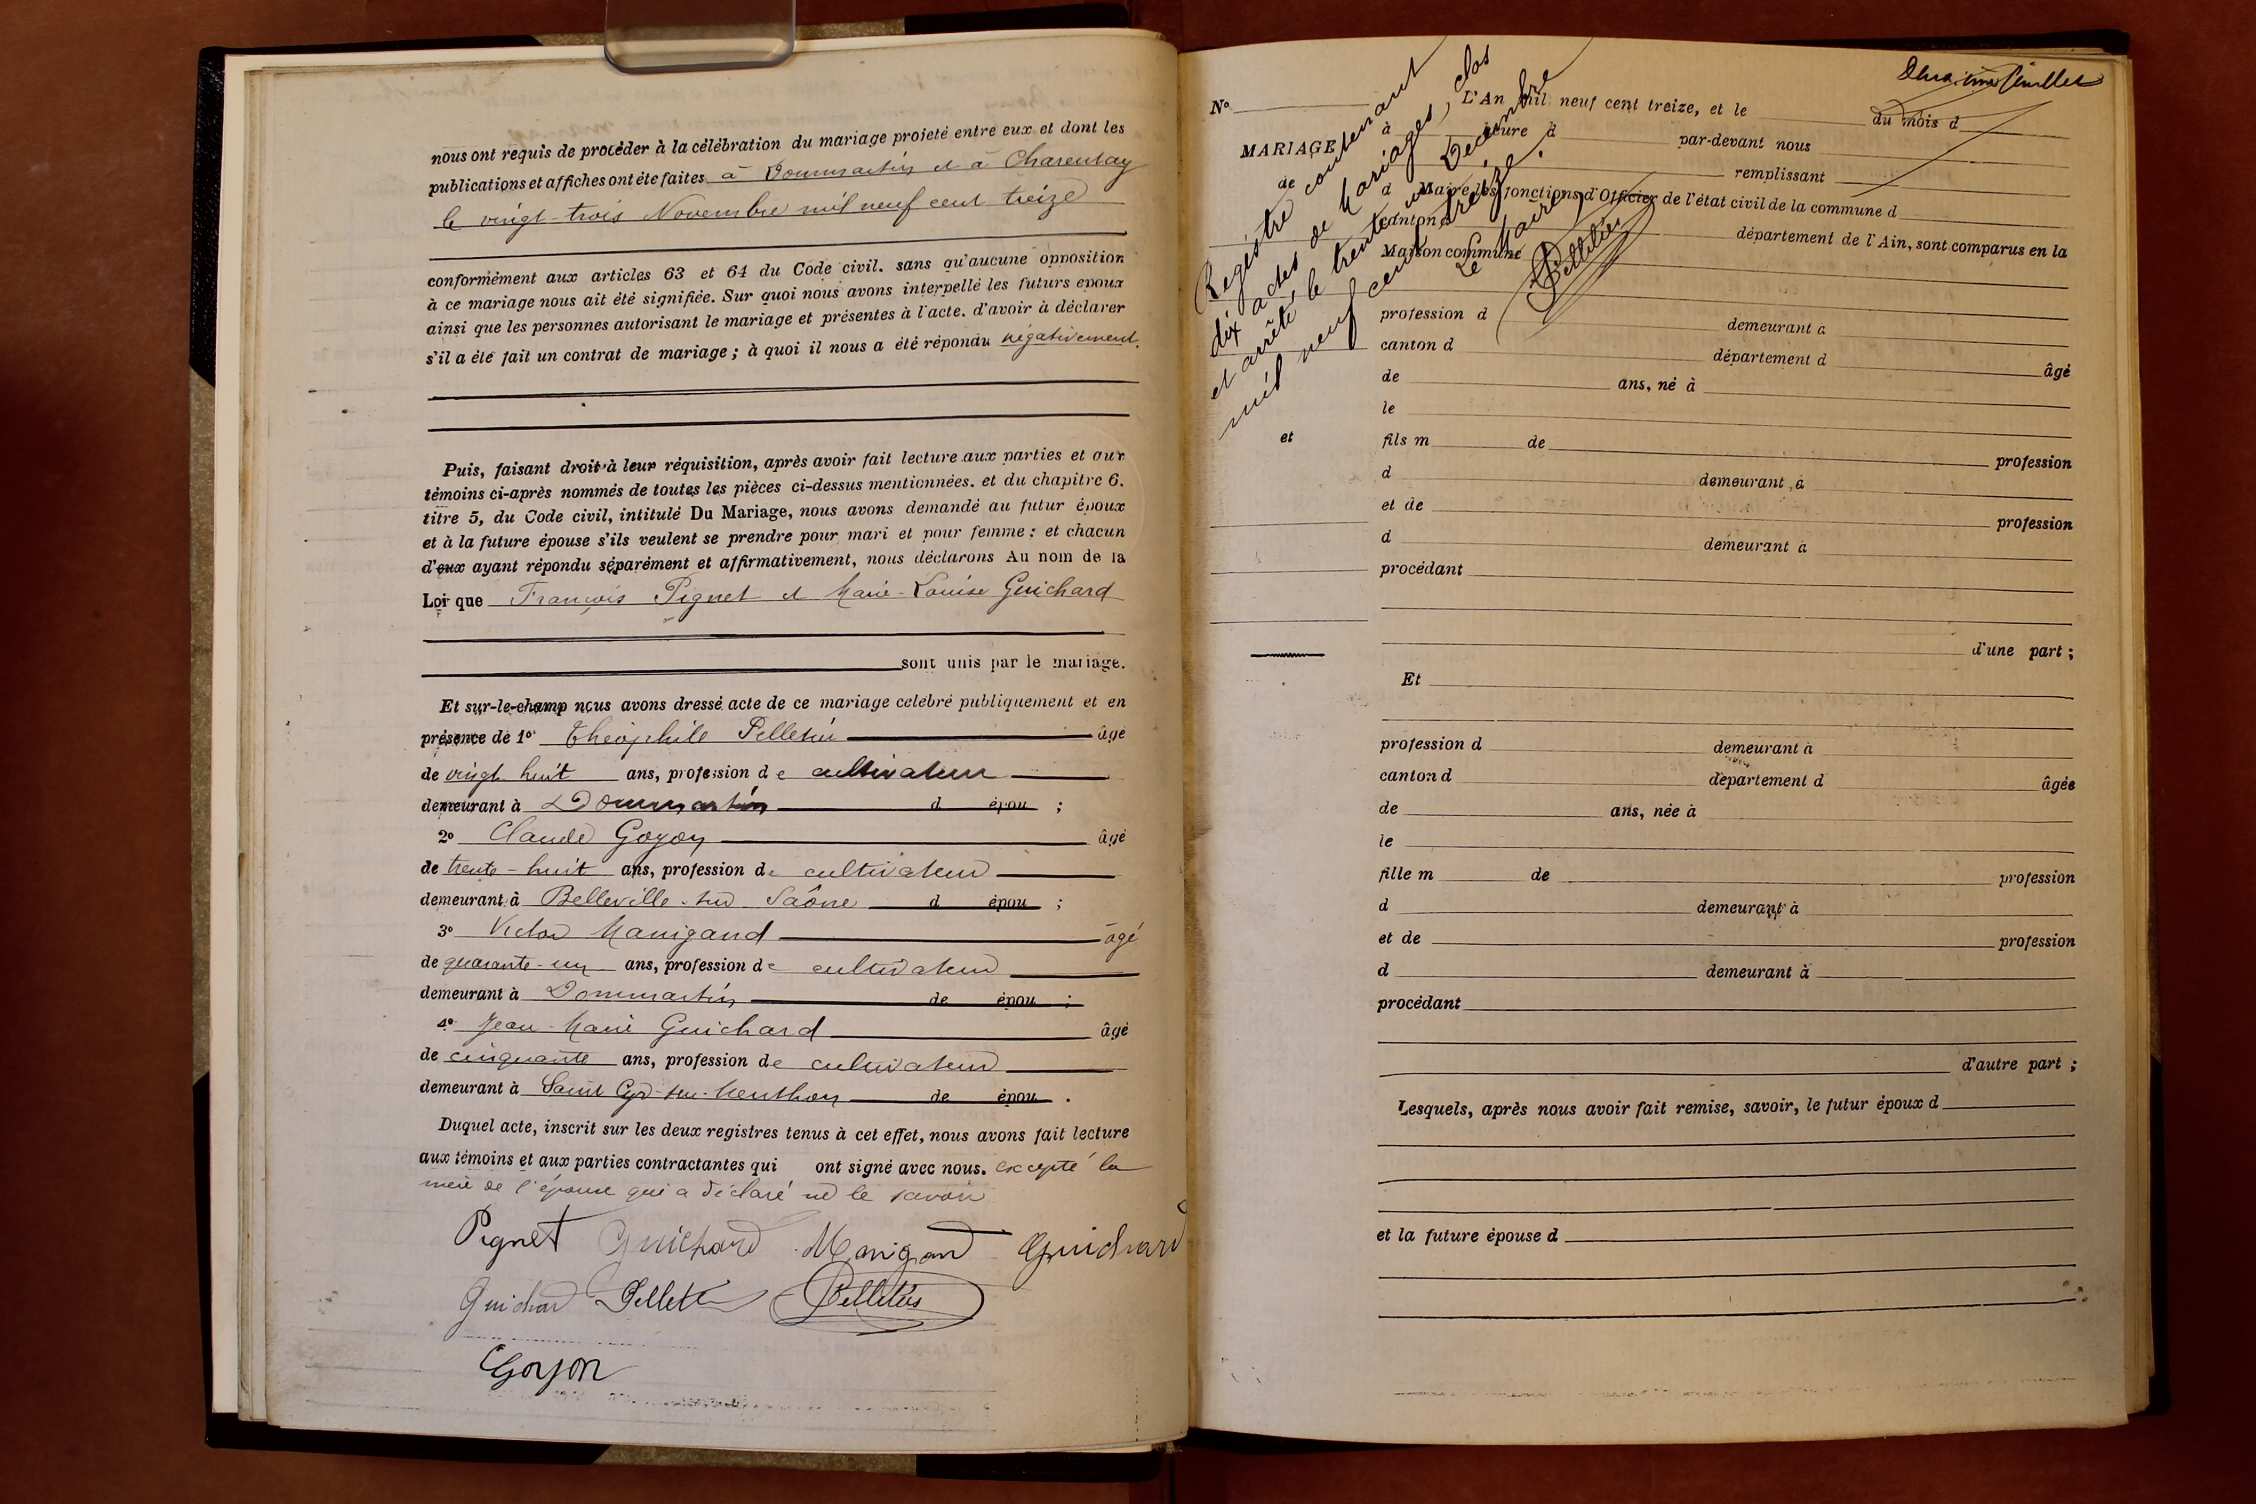 nous ont requis de procéder à la célébration du mariage projeté entre eux et dont les
publications et affiches ont été faites à Dommartin et à Charentay
le vingt-trois Novembre mil neuf cent treize
conformément aux articles 63 et 64 du Code civil. sans qu'aucune opposition
à ce mariage nous ait été signifiée. Sur quoi nous avons interpellé les futurs époux
ainsi que les personnes autorisant le mariage et présentes à l'acte. d'avoir à déclarer
s'il a été fait un contrat de mariage ; à quoi il nous a été répondu négativement.
Puis, faisant droit à leur réquisition, après avoir fait lecture aux parties et aux
témoins ci-après nommés de toutes les pièces ci-dessus mentionnées. et du chapitre 6.
titre 5, du Code civil, intitulé Du Mariage, nous avons demandé au futur époux
et à la future épouse s'ils veulent se prendre pour mari et pour femme : et chacun
d'eux ayant répondu séparément et affirmativement, nous déclarons Au nom de la
Loi que François Pignet et Marie-Louise Guichard
sont unis par le mariage.
Et sur-le-champ nous avons dressé acte de ce mariage célébré publiquement et en
présence de 1° Théophile Pelletin âgé
de vingt huit ans, profession de cultivateur
demeurant à Dommartin d épou ;
2° Claude Goyon âgé
de trente-huit ans, profession de cultivateur
demeurant à Belleville-sur Saône d épou ;
3° Victor Manigand âgé
de quarante-un ans, profession de cultivateur
demeurant à Dommartin de épou ;
4° Jean-Marie Guichard âgé
de cinquante ans, profession de cultivateur
demeurant à Saint Cyr-sur-Menthon de épou .
Duquel acte, inscrit sur les deux registres tenus à cet effet, nous avons fait lecture
aux témoins et aux parties contractantes qui ont signé avec nous. excepté la
mère de l'épouse qui a déclaré ne le savoir
Pignet Guichard Manigand Guichard
Guichard
Goyon
N°
MARIAGE
de
et
Registre contenant
dix actes de Mariages, clos
et arrêté le trente un Décembre
mil neuf cent treize.
Le Maire,
L'An mil neuf cent treize, et le du mois d
à heure d par-devant nous
remplissant
d Maire les fonctions d'Officier de l'état civil de la commune d
canton d département de l'Ain, sont comparus en la
Maison commune
profession d demeurant à
canton d département d âgé
de ans, né à
le
fils m de profession
d demeurant à
et de profession
d demeurant à
procédant
d'une part ;
Et
profession d demeurant à
canton d département d âgée
de ans, née à
le
fille m de profession
d demeurant à
et de profession
d demeurant à
procédant
d'autre part ;
Lesquels, après nous avoir fait remise, savoir, le futur époux d
et la future épouse d